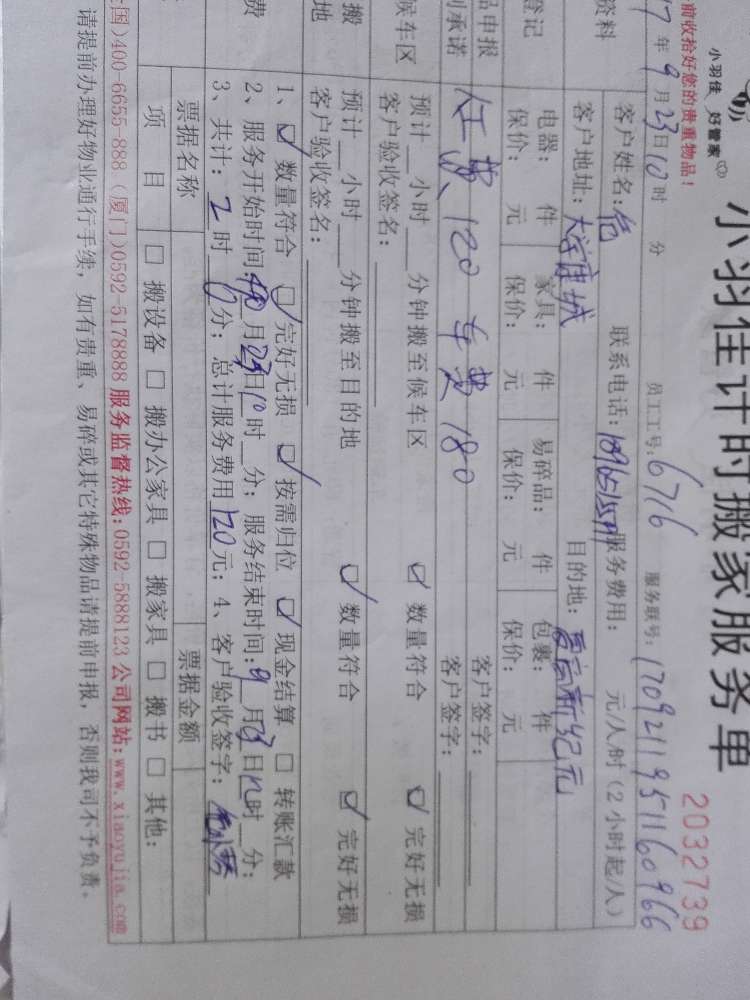 小羽佳 好管家
小羽佳计时搬家服务单
2032739
前收拾好您的贵重物品!
17年9月23日10时 分 员工工号:6716 服务联号:1709211951160966
资料
客户姓名: 联系电话: 服务费用: 元/人/时(2小时起/人)
客户地址: 目的地:
登记
电器: 件 家具: 件 易碎品: 件 包裹: 件
保价: 元 保价: 元 保价: 元 保价: 元
品申报 客户签字:
承诺 120 车费180 客户签字:
候车区
预计 小时 分钟搬至候车区 数量符合 完好无损
客户验收签名:
搬
地
预计 小时 分钟搬至目的地 数量符合 完好无损
客户验收签名:
费
1、 数量符合 完好无损 按需归位 现金结算 转账汇款
2、服务开始时间: 月23日10时 分; 服务结束时间:9月23日12时 分;
3、共计:2时0分; 总计服务费用120元; 4、客户验收签字:
票据名称 票据金额
项 目 搬设备 搬办公家具 搬家具 搬书 其他:
国)400-6655-888 (厦门)0592-5178888 服务监督热线:0592-5888123 公司网站:www.xiaoyujia.com
请提前办理好物业通行手续,如有贵重、易碎或其它特殊物品请提前申报,否则我司不予负责。